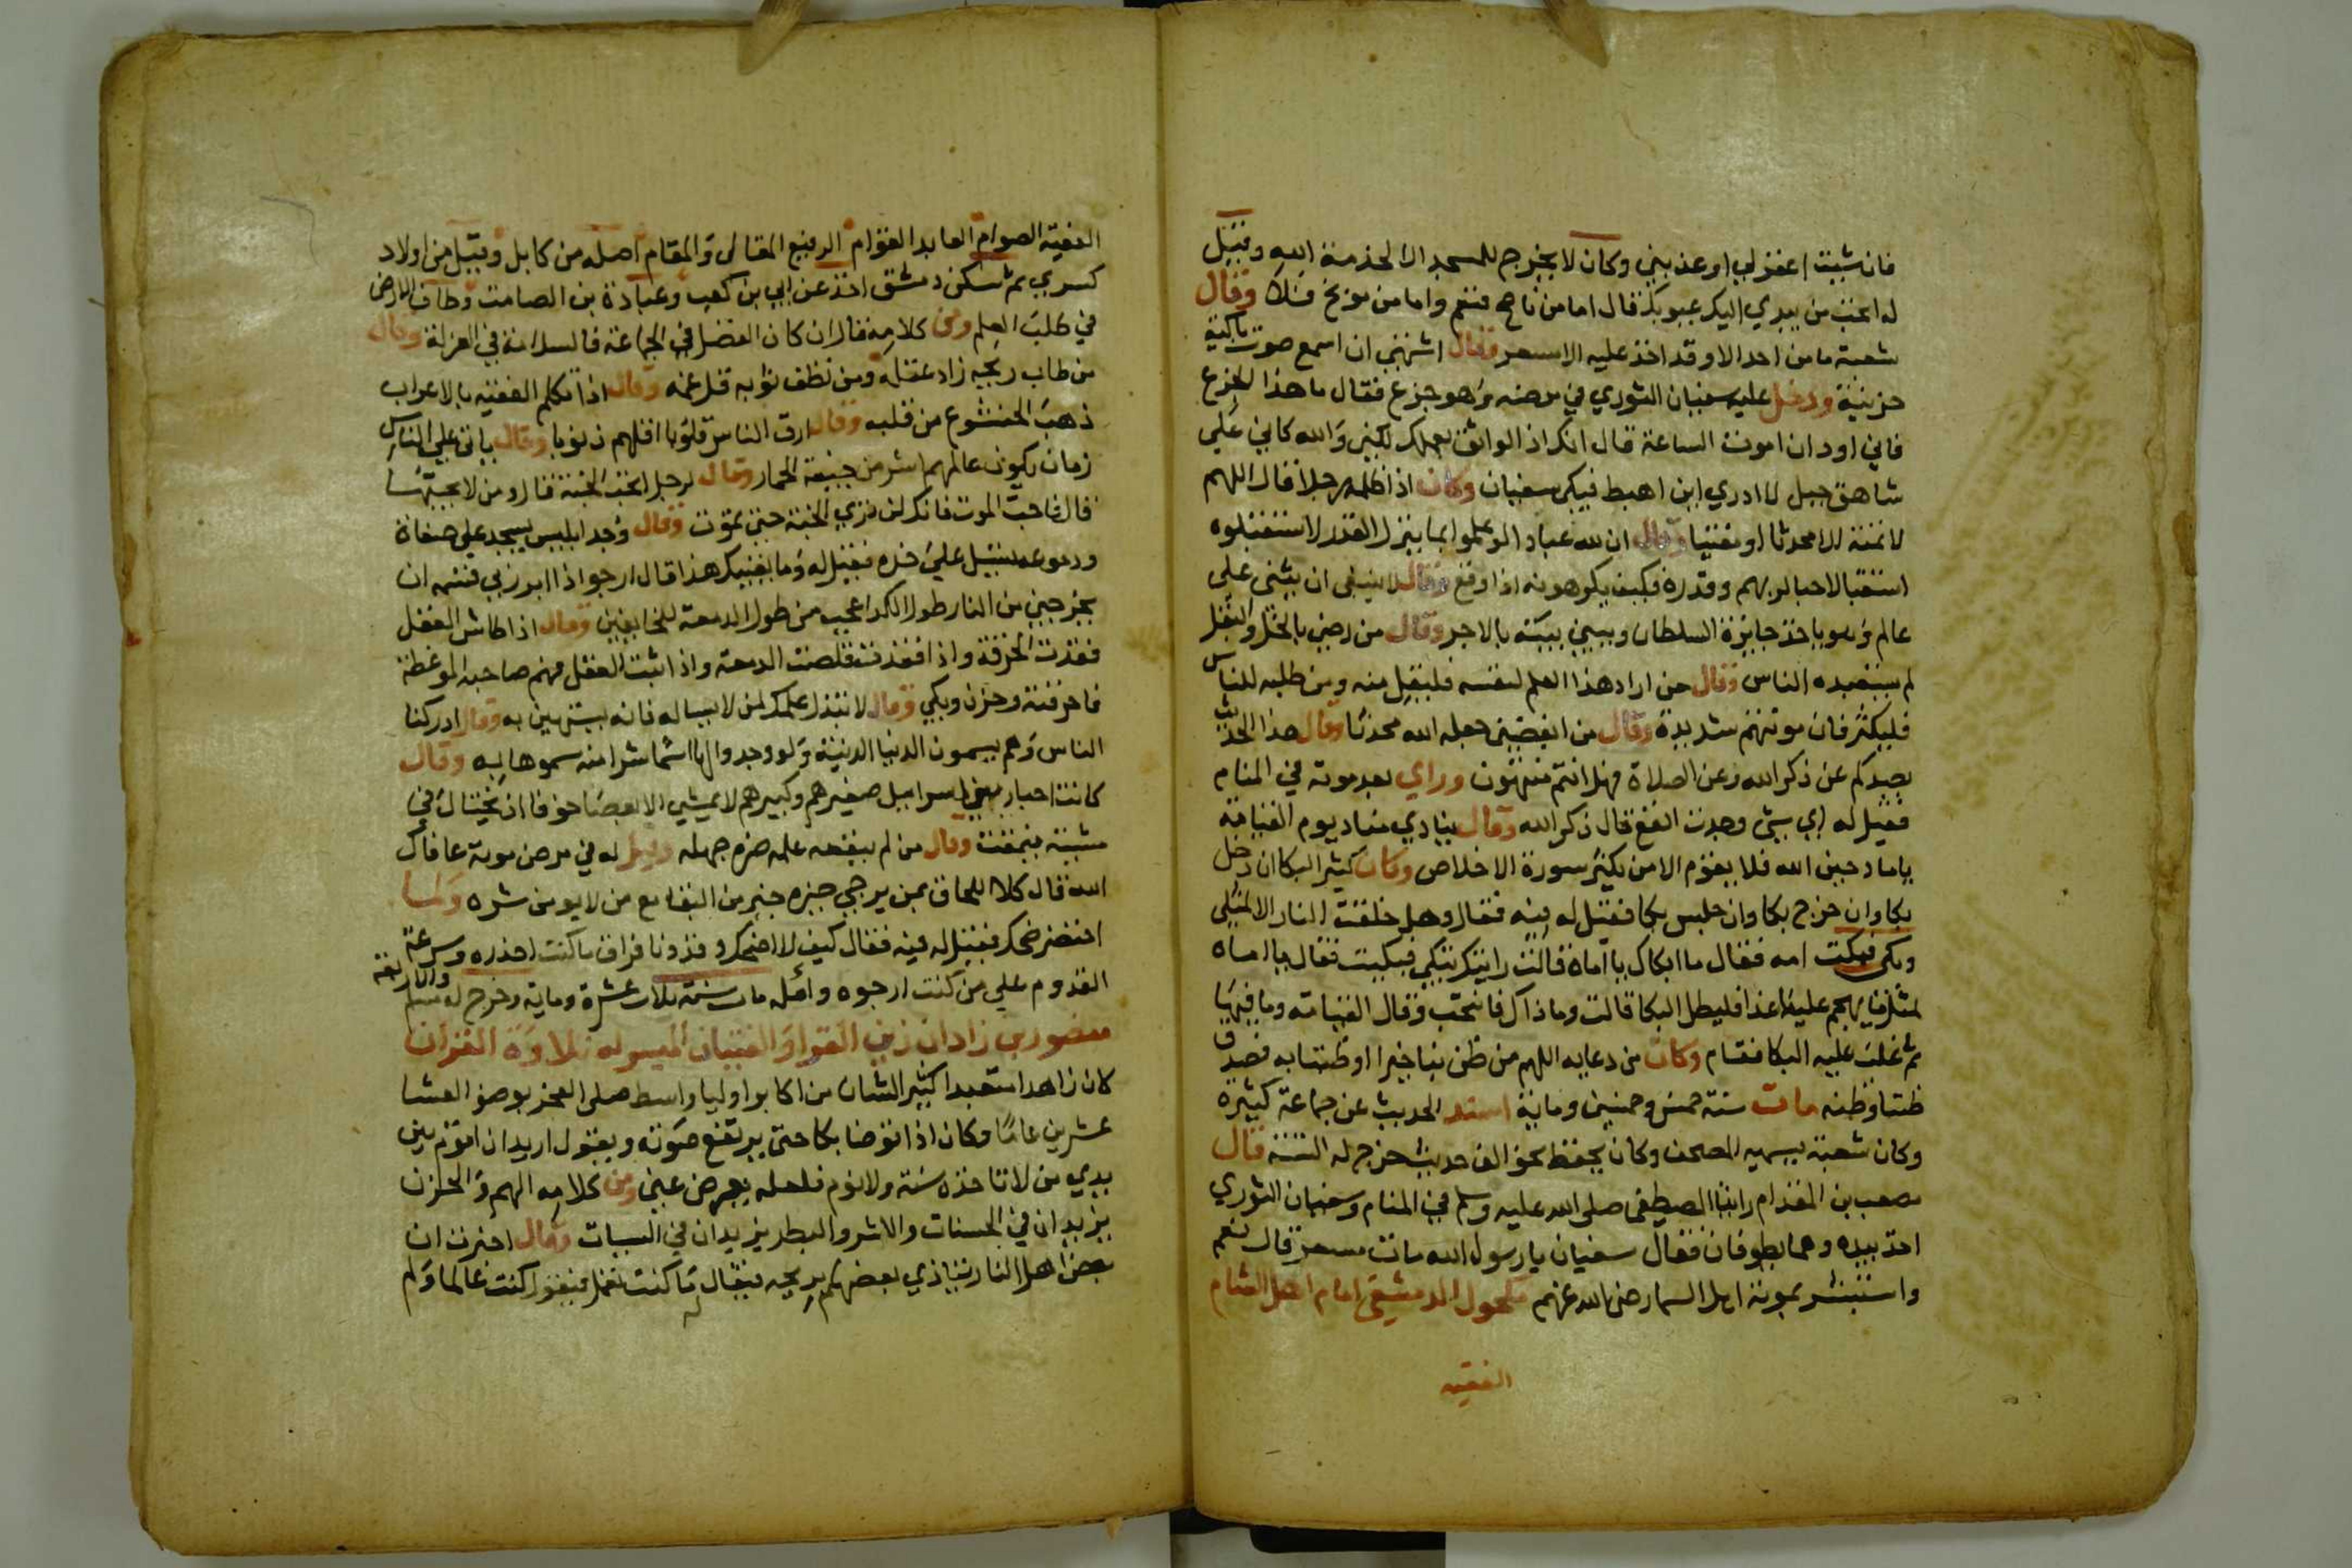 فان شيت اغفر لي او عذبني وكان لا يخرج للمسجد الا لخدمة الله وقيل
له اتحب من يهدي اليك عيوبك قال اما من ناصح فنعم واما من موبخ فلا وقال
شعبة ما من احد الا وقد اخذ عليه الا مسعر وقال اشتهي ان اسمع صوت باكية
حزينة ودخل عليه سفيان الثوري في مرضه وهو جزع فقال ما هذا الجزع
فاني اود ان اموت الساعة قال انك اذا لواثق بعملك لكني والله كاني على
شاهق جبل لا ادري اين اهبط فبكى سفيان وكان اذا ظلمه رجلا قال اللهم
لا تمته الا محدثا او مفتيا وقال ان لله عبادا لو علموا بما ينزل القدر لاستقبلوه
استقبالا حبا لربهم وقدره فكيف يكرهونه اذا وقع وقال لا ينبغي ان يثنى على
عالم وهو ياخذ جايزة السلطان ويبني بيته بالاجر وقال من رضي بالخل والبقل
لم يستعبده الناس وقال من اراد هذا العلم لنفسه فليقل منه ومن طلبه للناس
فليكثر فان موتهم شديدة وقال من ابغضني جعله الله محدثا وقال هذا الحديث
يصدكم عن ذكر الله وعن الصلاة فهل انتم منتهون وراي بعد موته في المنام
فقيل له اي شي وجدت انفع قال ذكر الله وقال ينادي مناد يوم القيامة
يا مادحين الله فلا يقوم الا من يكثر سورة الاخلاص وكان كثير البكا ان دخل
بكا وان خرج بكا وان جلس بكا فقيل له فيه فقال وهل خلقت النار الا لمثلي
وبكى فبكت امه فقال ما ابكاك يا اماه قالت رايتك تبكي فبكيت فقال يا اماه
لمثل ما يهجم عليه غدا فليطل البكا قالت وما ذاك فانتحب وقال القيامة وما فيها
ثم غلب عليه البكا فقام وكان من دعايه اللهم من ظن بنا خيرا او ظننا به فصدق
ظننا وظنه مات سنة خمس وخمسين وماية اسند الحديث عن جماعة كثيره
وكان شعبة يسميه المصحف وكان يحفظ نحو الف حديث خرج له الستة قال
مصعب بن المقدام رايت المصطفى صلى الله عليه وسلم في المنام وسفيان الثوري
اخذ بيده وهما يطوفان فقال سفيان يا رسول الله مات مسعر قال نعم
واستبشر بموته اهل السما رضي الله عنهم مكحول الدمشقي امام اهل الشام
الفقيه
الفقيه الصوام العابد القوام الرفيع المقال والمقام اصله من كابل وقيل من اولاد
كسري ثم سكن دمشق اخذ عن ابي بن كعب وعبادة بن الصامت وطاف الارض
في طلب العلم ومن كلامه قال ان كان الفضل في الجماعة فالسلامة في العزلة وقال
من طاب ريحه زاد عقله ومن نظف ثوبه قل غمه وقال اذا تكلم الفقيه بالاعراب
ذهب الخشوع من قلبه وقال ارق الناس قلوبا اقلهم ذنوبا وقال ياتي على الناس
زمان يكون عالمهم اشر من جيفة الحمار وقال لرجل اتحب الجنة قال ومن لا يحبها
قال فاحب الموت فانك لن تري الجنة حتى تموت وقال وجد ابليس يسجد على صفاة
ودموعه تسيل على خده فقيل له وما يغنيك هذا قال ارجو اذا ابر ربي قسمه ان
يخرجني من النار طول الكد اعجب من طول الدمعة للخايفين وقال اذا طاش العقل
فقدت الحرقة واذا فقدت قلصت الدمعة واذا ثبت العقل فهم صاحبه الموعظة
فاحرقته وحزن وبكى وقال لا تبذل علمك لمن لا يساله فانه يستهين به وقال ادركنا
الناس وهم يسمون الدنيا الدنية ولو وجدوا لها اسما شرا منه سموها به وقال
كانت احبار بني اسراييل صغيرهم وكبيرهم لا يمشي الا بعصا خوفا ان يختال في
مشيته فيمقت وقال من لم ينفعه علمه ضره جهله وقيل له في مرض موته عافاك
الله قال كلا اللحاق بمن يرجي خيره خير من البقا مع من لا يومن شره ولما
احتضر ضحك فقيل له فيه فقال كيف لا اضحك وقد دنا فراق ما كنت احذره وسرعة
القدوم على من كنت ارجوه وامله مات سنة ثلاث عشرة وماية وخرج له مسلم والاربعة
منصور بن زادان زين القرا والفتيان الميسر له تلاوة القران
كان زاهدا متعبدا كثير الشان من اكابر اوليا واسط صلى الفجر بوضوء العشا
عشرين عاما وكان اذا توضا بكا حتى يرتفع صوته ويقول اريد ان اقوم بين
يدي من لا تاخذه سنة ولا نوم فلعله يعرض عني ومن كلامه الهم والحزن
يزيدان في الحسنات والاشر والبطر يزيدان في السيات وقال اخبرت ان
بعض اهل النار يتاذي بعضهم بريحه فيقال له ما كنت تعمل فيقول كنت عالما ولم